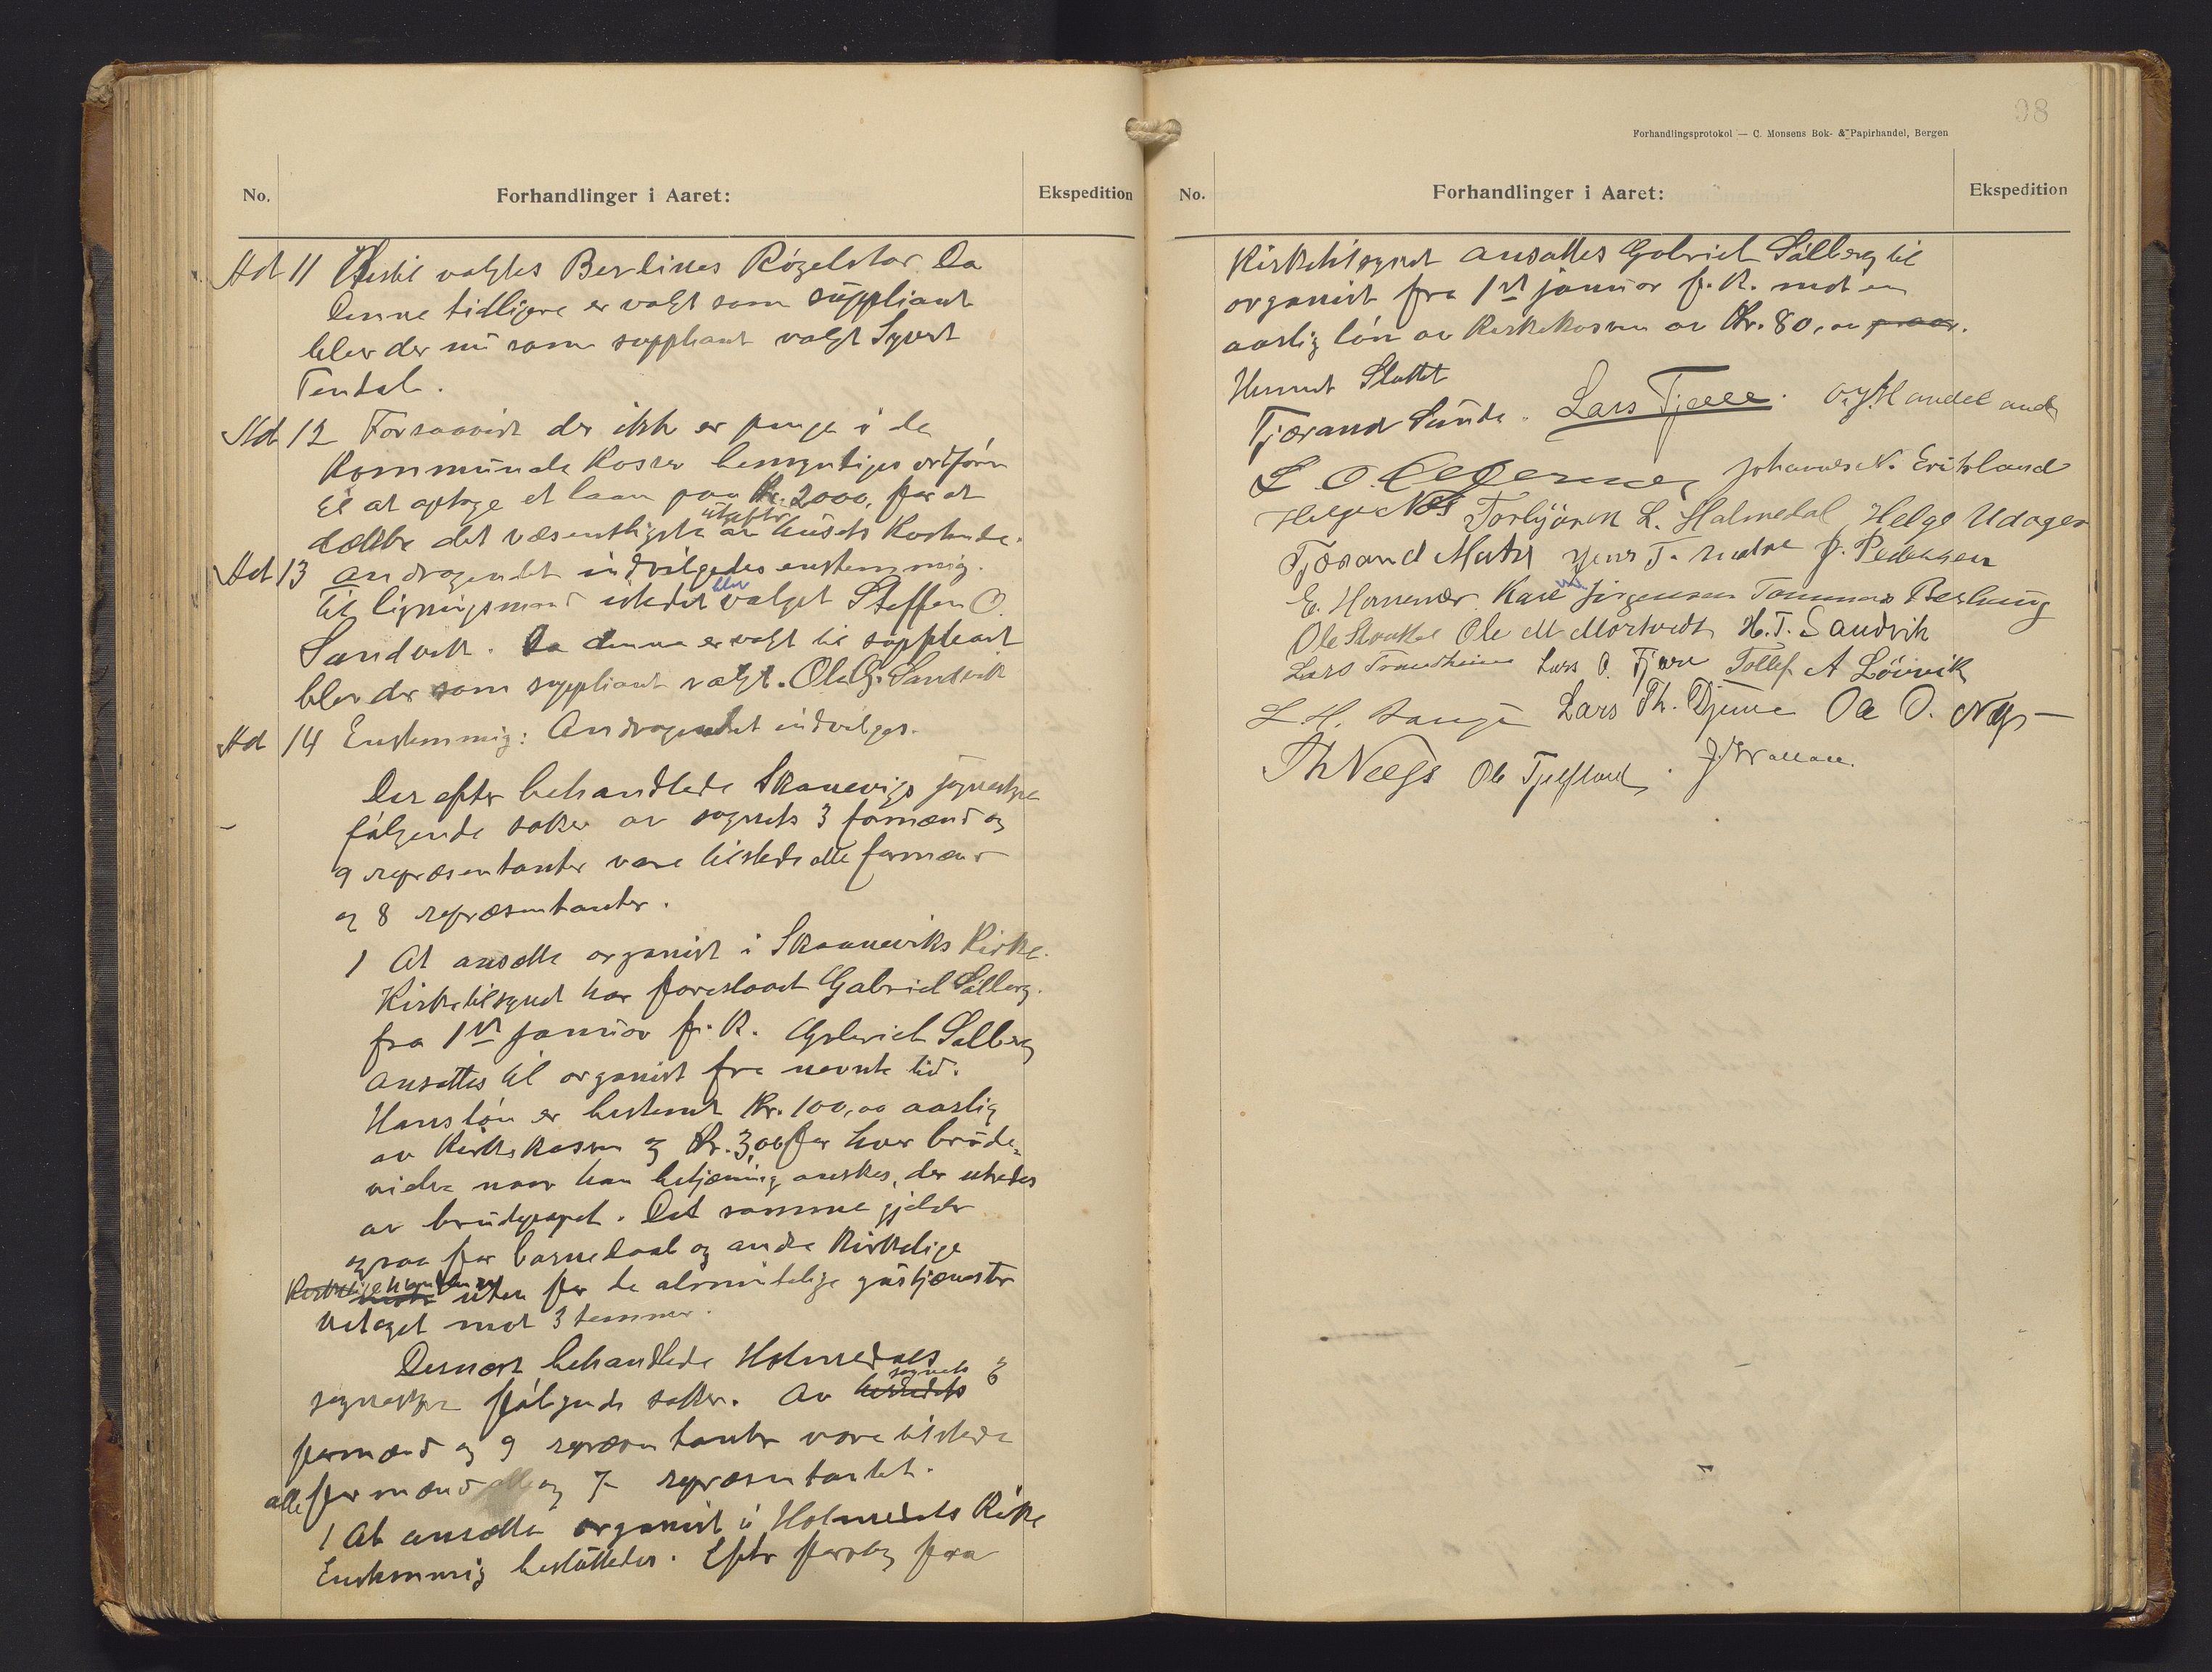 No. Forhandlinger i Aaret: Ekspedition
Ad 11 Hertil valgtes Berlines Røgelstar. Da
denne tidligere er valgt som süppliant
blev der nü som suppliant valgt Sjvert
Tendal.
Ad 12 Forsaavidt der ikke er penge i de
Kommünale Kasser bemyntiges ordfører
til at optage et laan paa Kr. 2000, for at
dække det væsentligste av husets Kostende.
Ad 13 Andragendet indvilgedes enstemmig.
Til ligningsmand istedet blev valget Steffen O.
Sandvik. Da denne er valgt til suppleant
blev der som suppliant valgt. Ole G. Sandvik
Ad 14 Enstemmig: Andragendet indvilges.
Der efter behandlede Skanevigs sognestyre
følgende saker av sognets 3 formænd og
9 repræsentanter vare tilstede alle formænd
og 8 repræsentanter.
1 At ansætte organist i Skaaneviks Kirke.
Kirketilsynet har foreslaaet Gabriel Sølberg.
fra 1st januar f. K. Gabriel Sølberg
ansættes til organist fra nevnte tid.
Hans løn er bestemt Kr. 100,00 aarlig
av Kirkekassen og Kr. 3,00 for hver brüde=
vielse naar han betjæning ønskes, der utredes
av brudeparet. Det samme gjelder
ogsaa for barnedaab og andre Kirkelige
Kirkelige handlinger uten for de almindelige güstjænester
Vetaget mot 3 stemmer.
Dernæst behandlede Holmedals
sognestyre følgende saker. Av herredets sognets 3
formænd og 9 repræsentanter vare tilstede
alle formænd alle og 7 repræsentanter.
1 At ansætte organist i Holmedals Kirke
Enstemmig besluttedes. Efter forslag fra
98
Forhandlingsprotokol — C. Monsens Bok- & Papirhandel, Bergen
No. Forhandlinger i Aaret: Ekspedition
Kirketilsynet ansættes Gabriel Sølberg til
organist fra 1st januar f. K. mot en
aarlig løn av Kirkekassen av Kr. 80,00 pr aar.
Slattet
Tjærand Sunde. Lars Tjelle. O. J. Handeland
Johannes N. Eriksland
Helge Næs Torbjørn L. Holmedal, Helge Udager
Tjærand Matre Jens T. Matre P. Pedersen
E. Hornenær. Karl Jørgensen Tommas Berhaug
Ole Ole M Mørtvedt H. T. Sandvik
Lars Trondheim Lars O. Fjære Tollef A Løivik
L H. Lars Th. Ole O. Næs
Th Næs Ole Tjelfland. J. Vrallan.